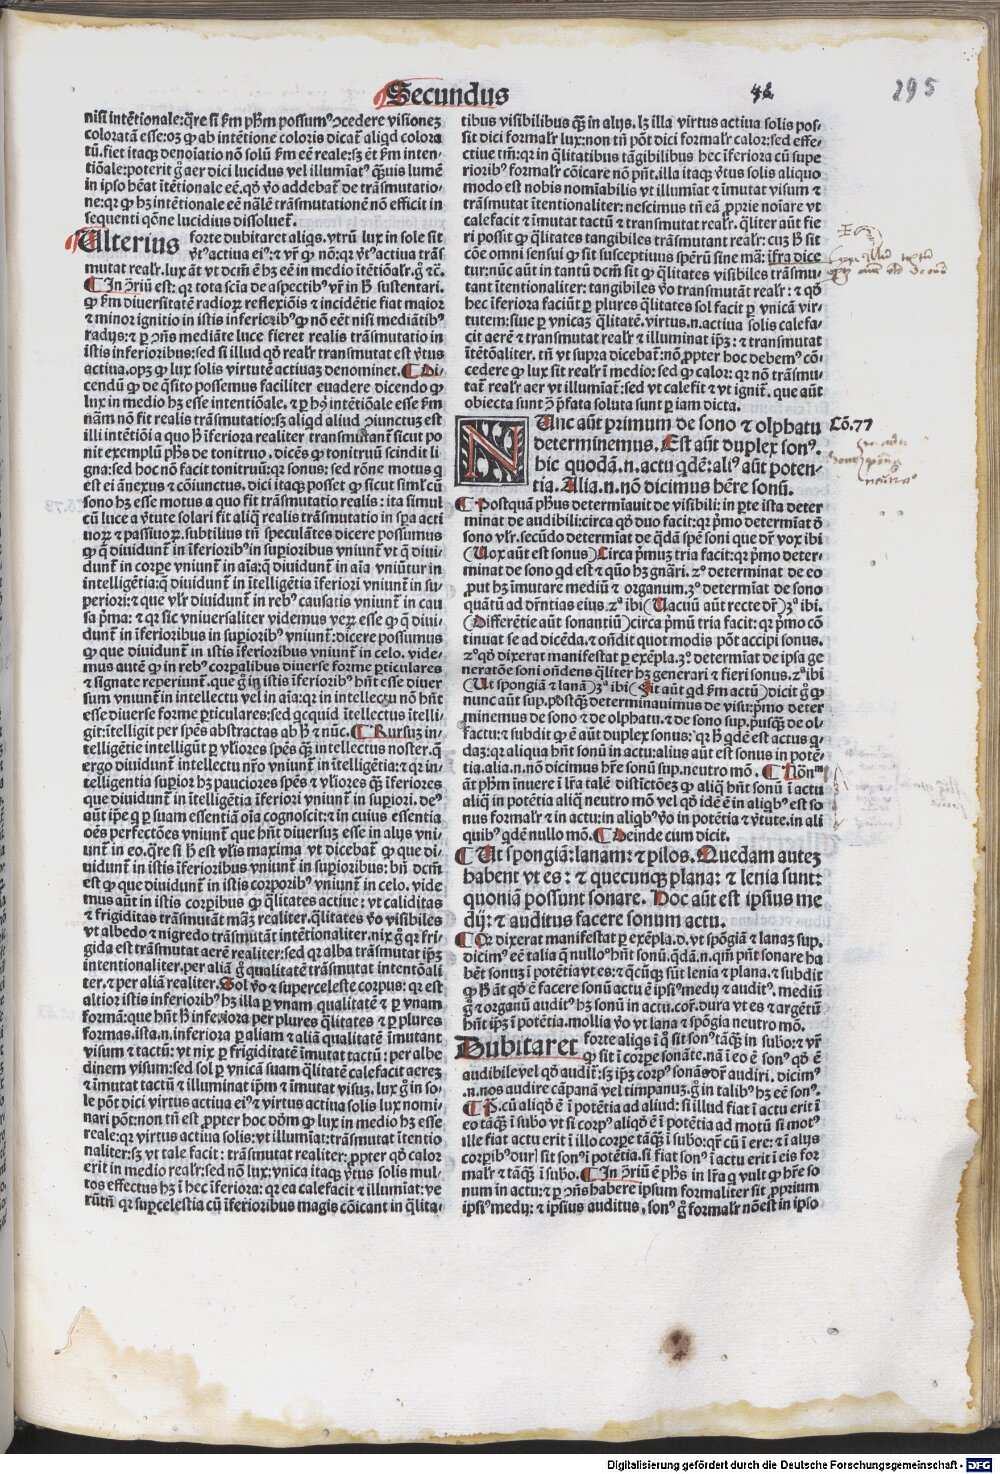 Secundus
42
295
nisi intẽtionale: q̃re si ẜm pħm possumꝰ ↄcedere visionẽ
coloratã esse: oꝫ ꝙ ab intẽtione coloris dicat̃ aliqd colora
tũ. fiet itaqꝫ denoĩatio nõ solũ ẜm eẽ reale: sꝫ ẽt ẜm inten-
tiõale: poterit g̃ aer dici lucidus vel illumiatꝰ q̃uis lumẽ
in ipso hẽat ĩtẽtionale eẽ. qõ ṽo addebat̃ de trãsmutatio-
ne: qꝛ ꝙ hꝫ intẽtionale eẽ nãlẽ trãsmutationẽ nõ efficit in
sequenti q̃one lucidius dissoluet̃.
Ulterius forte dubitaret aliqs. vtrũ lux in sole sit
ṽtꝰ actiua eiꝰ: ⁊ vr̃ ꝙ nõ: qꝛ ṽtꝰ actiua trãs
mutat realr̃. lux aũt vt dcm̃ ẽ hꝫ eẽ in medio ĩtẽtiõalr̃. g̃ ⁊c̃.
¶ In ↄ̃riũ est: qꝛ tota scĩa de aspectibꝰ vr̃ in ħ sustentari.
ꝙ ẜm diuersitatẽ radioꝝ reflexiõis ⁊ incidẽtie fiat maior
⁊ minor ignitio in istis inferioribꝰ ꝙ nõ eẽt nisi mediãtibꝰ
radijs: ⁊ ꝑ ↄñs mediãte luce fieret realis trãsmutatio in
istis inferioribus: sed si illud qõ realr̃ transmutat est ṽtus
actiua. opꝫ ꝙ lux solis virtutẽ actiuaꝫ denominet. ¶ Di-
cendũ ꝙ de q̃sito possemus faciliter euadere dicendo ꝙ
lux in medio hꝫ esse intentiõale. ⁊ ꝑ hꝰ intẽtionale esse ẜm
nãm nõ fit realis trãsmutatio: sꝫ aliqd aliud ↄiunctuꝫ est
illi intẽtiõi a quo ħ ĩferiora realiter transmutant̃ sicut po
nit exemplũ pħs de tonitruo. dicẽs ꝙ tonitruũ scindit li
gna: sed hoc nõ facit tonitruũ: qꝛ sonus: sed rõne motus q
est ei ãnexus ⁊ cõiunctus. dici itaqꝫ posset ꝙ sicut siml̃ cũ
sono hꝫ esse motus a quo fit trãsmutatio realis: ita simul
cũ luce a ṽtute solari fit aliq̃ realis trãsmutatio in sp̃a acti
uoꝝ ⁊ passiuoꝝ. subtilius tñ speculãtes dicere possumus
ꝙ q̃ diuidunt̃ in ĩferioribꝰ in supioribus vniunt̃ vt q̃ diui-
dunt̃ in corpe vniunt̃ in aĩa: q̃ diuidunt̃ in aĩa vniũtur in
intelligẽtia: q̃ diuidunt̃ in ĩtelligẽtia ĩferiori vniunt̃ in su-
periori: ⁊ que vlr̃ diuidunt̃ in rebꝰ causatis vniunt̃ in cau
sa p̃ma: ⁊ qꝛ sic vniuersaliter videmus veꝝ esse ꝙ q̃ diui-
dunt̃ in ĩferioribus in supioribꝰ vniunt̃: dicere possumus
ꝙ que diuidunt̃ in istis ĩferioribus vniunt̃ in celo. vide-
mus autẽ ꝙ in rebꝰ corpalibus diuerse forme ꝑticulares
⁊ signate reperiunt̃. que g̃ iꝫ istis ĩferioribꝰ hñt esse diuer
sum vniunt̃ in intellectu vel in aĩa: qꝛ in intellectu nõ hñt
esse diuerse forme ꝑticulares: sed qcquid ĩtellectus ĩtelli-
git: ĩtelligit per spẽs abstractas ab ħ ⁊ nũc. ¶ Rursuꝫ in-
telligẽtie intelligũt ꝑ vl̃iores spẽs q̃ꝫ intellectus noster. q̃
ergo diuidunt̃ intellectu nr̃o vniunt̃ in intelligẽtia: ⁊ qꝛ in-
telligentia supior hꝫ pauciores spẽs ⁊ vl̃iores q̃ꝫ ĩferiores
que diuidunt̃ in ĩtelligẽtia ĩferiori vniunt̃ in supiori. deꝰ
aũt ip̃e q̃ ꝑ suam essentiã oĩa cognoscit: ⁊ in cuius essentia
oẽs perfectões vniunt̃ que hñt diuersuꝫ esse in alijs vni-
unt̃ in eo. q̃re si ħ est vl̃is maxima vt dicebat̃ ꝙ que di-
uidunt̃ in istis ĩferioribus vniunt̃ in supioribus: bñ dcm̃
est ꝙ que diuidunt̃ in istis corpibꝰ vniunt̃ in celo. vide
mus aũt in istis corpibus ꝙ q̃litates actiue: vt caliditas
⁊ frigiditas trãsmutãt mãꝫ realiter. q̃litates ṽo visibiles
vt albedo ⁊ nigredo trãsmutãt intẽtionaliter. nix g̃ qꝛ fri-
gida est trãsmutat aerẽ realiter: sed qꝛ alba trãsmutat ip̃ꝫ
intentionaliter. per aliã g̃ qualitatẽ trãsmutat intentõali
ter. ⁊ per aliã realiter. Sol ṽo ⁊ superceleste corpus: qꝛ est
altior istis inferioribꝰ hꝫ illa ꝑ vnam qualitatẽ ⁊ ꝑ vnam
formã: que hñt ħ inferiora per plures q̃litates ⁊ ꝑ plures
formas. ista. n. inferiora ꝑ aliam ⁊ aliã qualitatẽ ĩmutant
visum ⁊ tactũ: vt nix ꝑ frigiditatẽ ĩmutat tactũ: per albe
dinem visum: sed sol ꝑ vnicã suam q̃litatẽ calefacit aereꝫ
⁊ ĩmutat tactũ ⁊ illuminat ip̃m ⁊ ĩmutat visuꝫ. lux g̃ in so-
le põt dici virtus actiua eiꝰ ⁊ virtus actiua solis lux nomi-
nari põt: non tñ est ꝓpter hoc dõm ꝙ lux in medio hꝫ esse
reale: qꝛ virtus actiua solis: vt illumiat: trãsmutat ĩtentio
naliter: sꝫ vt tale facit: trãsmutat realiter: ꝓpter qõ calor
erit in medio realr̃: sed nõ lux: vnica itaqꝫ ṽtus solis mul-
tos effectus hꝫ ĩ hec ĩferiora: qꝛ ea calefacit ⁊ illumiat: ve
rũtñ qꝛ supcelestia cũ ĩferioribus magis cõicant in q̃lita-
tibus visibilibus q̃ꝫ in alijs. lꝫ illa virtus actiua solis pos-
sit dici formalr̃ lux: non tñ põt dici formalr̃ calor: sed effe-
ctiue tm̃: qꝛ in q̃litatibus tãgibilibus hec ĩferiora cũ supe
rioribꝰ formalr̃ cõicare nõ pñt. illa itaqꝫ ṽtus solis aliquo
modo est nobis nomiabilis vt illumiat ⁊ ĩmutat visum ⁊
trãsmutat ĩtentionaliter: nescimus tñ eã ꝓprie noĩare vt
calefacit ⁊ ĩmutat tactũ ⁊ transmutat realr̃. q̃liter aũt fie
ri possit ꝙ q̃litates tangibiles trãsmutant realr̃: cuꝫ ħ sit
cõe omni sensui ꝙ sit susceptiuus sperũ sine mã: ifra dice
tur: nũc aũt in tantũ dcm̃ sit ꝙ q̃litates visibiles trãsmu-
tant ĩtentionaliter: tangibiles ṽo trãsmutãt realr̃: ⁊ qõ
hec ĩferiora faciũt ꝑ plures q̃litates sol facit ꝑ vnicã vir-
tutem: siue ꝑ vnicaꝫ q̃litatẽ. virtus. n. actiua solis calefa-
cit aerẽ ⁊ transmutat realr̃ ⁊ illuminat ip̃ꝫ: ⁊ transmutat
ĩtẽtõaliter. tñ vt supra dicebat̃: nõ ꝓpter hoc debemꝰ cõ-
cedere ꝙ lux sit realr̃ ĩ medio: sed ꝙ calor: qꝛ nõ trãsmu-
tat̃ realr̃ aer vt illumiat̃: sed vt calefit ⁊ vt ignit̃. que aũt
obiecta sunt ↄ̃ p̃fata soluta sunt ꝑ iam dicta.
NUnc aũt primum de sono ⁊ olphatu
determinemus. Est aũt duplex sonꝰ.
hic quodã. n. actu qdẽ: aliꝰ aũt poten-
tia. Alia. n. nõ dicimus hẽre sonũ.
Cõ. 77
¶ Postquã pħus determĩauit de visibili: in ꝑte ista deter
minat de audibili: circa qõ duo facit: qꝛ p̃mo determĩat õ
sono vlr̃. secũdo determĩat de q̃dã spẽ soni que dr̃ vox ibi
(Uox aũt est sonus) Circa p̃muꝫ tria facit: qꝛ p̃mo deter-
minat de sono qd est ⁊ qũo hꝫ gnãri. 2ꝰ determinat de eo
ꝓut hꝫ ĩmutare mediũ ⁊ organum. 3ꝰ determĩat de sono
quãtũ ad dr̃ntias eius. 2ᵃ ibi (Uacuũ aũt recte dr̃) 3ᵃ ibi.
(Differẽtie aũt sonantiũ) circa p̃mũ tria facit: qꝛ p̃mo cõ
tinuat se ad dicẽda. ⁊ oñdit quot modis põt accipi sonus.
2ꝰ qõ dixerat manifestat ꝑ exẽpla. 3ꝰ determĩat de ipsa ge
neratõe soni oñdens q̃liter hꝫ generari ⁊ fieri sonus. 2ᵃ ibi
(Ut spongiã ⁊ lanã) 3ᵃ ibi (Fit aũt qd ẜm actũ) dicit g̃ ꝙ
nunc aũt sup. postq̃ꝫ determinauimus de visu: p̃mo deter
minemus de sono ⁊ de olphatu. ⁊ de sono sup. p̃usq̃ꝫ de ol-
factu: ⁊ subdit ꝙ ẽ aũt duplex sonus: qꝛ ħ qdẽ est actus q-
daꝫ: qꝛ aliqua hñt sonũ in actu: alius aũt est sonus in potẽ-
tia. alia. n. nõ dicimus hr̃e sonũ sup. neutro mõ. ¶ Nõn
ãt pħm ĩnuere ĩ lr̃a talẽ distictõeꝫ ꝙ aliq̃ hñt sonũ ĩ actu
aliq̃ in potẽtia aliq̃ neutro mõ vel qõ idẽ ẽ in aliqbꝰ est so
nus formalr̃ ⁊ in actu: in aliqbꝰ ṽo in potẽtia ⁊ ṽtute. in ali
quibꝰ qdẽ nullo mõ. ¶ Deinde cum dicit.
¶ Ut spongiã: lanam: ⁊ pilos. Quedam auteꝫ
habent vt es: ⁊ quecunqꝫ plana: ⁊ lenia sunt:
quoniã possunt sonare. Hoc aũt est ipsius me
dij: ⁊ auditus facere sonum actu.
¶ Qꝛ dixerat manifestat ꝑ exẽpla. d. vt spõgiã ⁊ lanaꝫ sup.
dicimꝰ eẽ talia q̃ nullo hñt sonũ. q̃dã. n. qm̃ pñt sonare ha
bẽt sonuꝫ ĩ potẽtia vt es: ⁊ q̃cũqꝫ sũt lenia ⁊ plana. ⁊ subdit
ꝙ ħ ãt qõ ẽ facere sonũ actu ẽ ip̃siꝰ medij ⁊ auditꝰ. mediũ
g̃ ⁊ organũ auditꝰ hꝫ sonũ in actu. cor. dura vt es ⁊ argẽtũ
hñt ip̃ꝫ ĩ potẽtia. mollia ṽo vt lana ⁊ spõgia neutro mõ.
Dubitaret forte aliqs ĩ q̃ sit sonꝰ tãq̃ꝫ in subo: ⁊ vr̃
ꝙ sit ĩ corpe sonãte. nã ĩ eo ẽ sonꝰ qõ ẽ
audibile vel qõ audit̃: sꝫ ip̃ꝫ corpꝰ sonãs dr̃ audiri. dicimꝰ
. n. nos audire cãpanã vel timpanuꝫ. g̃ in talibꝰ hꝫ eẽ sonꝰ.
¶ P. cũ aliqõ ẽ ĩ potẽtia ad aliud: si illud fiat ĩ actu erit ĩ
eo tãq̃ꝫ ĩ subo vt si corpꝰ aliqõ ẽ ĩ potẽtia ad motũ si motꝰ
ille fiat actu erit ĩ illo corpe tãq̃ꝫ ĩ subo: qꝛ cũ ĩ ere: ⁊ ĩ alijs
corpibꝰ duri sit sonꝰ ĩ potẽtia. si fiat sonꝰ ĩ actu erit ĩ eis for
malr̃ ⁊ tãq̃ꝫ ĩ subo. ¶ In ↄ̃riũ ẽ pħs in lr̃a q̃ vult ꝙ hr̃e so
num in actu: ⁊ ꝑ ↄñs habere ipsum formaliter sit ꝓprium
ipsiꝰ medij: ⁊ ipsius auditus. sonꝰ g̃ formalr̃ nõ est in ipso
Digitalisierung gefördert durch die Deutsche Forschungsgemeinschaft - DFG